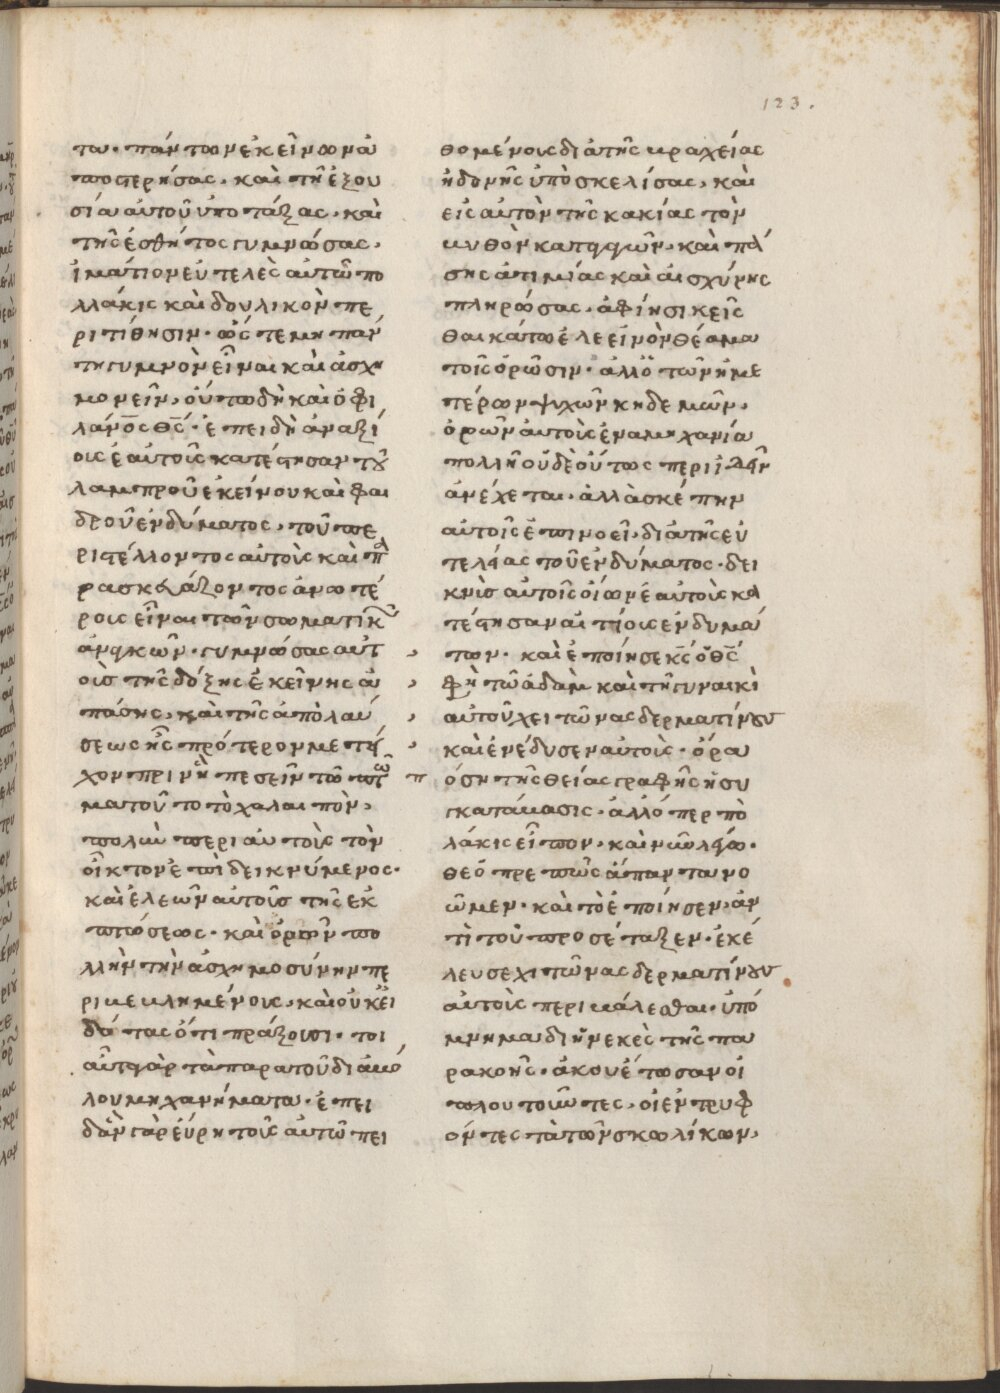 123.
τα· πάντων ἐκείνων ἀ
ποστερήσας, καὶ τῇ ἐξου
σία αὐτοῦ ὑποτάξας, καὶ
τῆς ἐσθῆτος γυμνώσας,
ἱμάτιον εὐτελὲς αὐτῶ πο
λλάκις καὶ δουλικὸν πε
ριτίθησιν· ὥστε μὴ πάν
τη γυμνὸν εἶναι καὶ ἀσχη
μονεῖν, οὕτω δὴ καὶ ὁ φι
λάνος θς· ἐπειδὴ ἀναξί
ους ἑαυτοὺς κατέστησαν τοῦ
λαμπροῦ ἐκείνου καὶ φαι
δροῦ ἐνδύματος, τοῦ πε
ριστέλλοντος αὐτοὺς καὶ πα
ρασκευάζοντος ἀνωτέ
ρους εἶναι τῶν σωματικῶν
ἀναγκῶν· γυμνώσας αὐτ
οὺς τῆς δόξης ἐκείνης ἁ
πάσης, καὶ τῆς ἀπολαύ
σεως ἧς πρότερον μετεῖ
χον πρινὴ πεσεῖν τῶ πτω
μα τοῦτο τὸ χαλαιπὸν,
πολὺν περὶ αὐτοὺς τὸν
οἶκτον ἐπιδεικνύμενος·
καὶ ἐλεῶν αὐτοὺς τῆς ἐκ
πτώσεως· καὶ ὁρῶν πο
λλὴν τὴν ἀσχημοσύνην πε
ριβεβλημένους, καὶ οὐκ εἰ
δότας ὅτι πράξουσι· τοι
αῦτα γὰρ τὰ παρὰ τοῦ διαβό
λου μηχανήματα· ἐπει
δὰν γὰρ εὕρη τοὺς αὐτῶ πει
θομένους διὰ τῆς βραχείας
ἡδονῆς ὑποσκελίσας, καὶ
εἰς αὐτὸν τῆς κακίας τὸν
βυθὸν καταγαγὼν, καὶ πά
σης ἀτιμίας καὶ αἰσχύνης
πληρώσας· ἀφίησι κεῖς
θαι κάτω ἐλεεινὸν θέαμα
τοῖς ὁρῶσιν· ἀλλ' ὁ τῶν ἡμε
τέρων ψυχῶν κηδεμὼν,
ὁρῶν αὐτοὺς ἐν ἀμηχανία
πολλῆ οὐδὲ οὕτως περιιδεῖν
ἀνέχεται, ἀλλὰ σκέπην
αὐτοῖς ἐπινοεῖ, διὰ τῆς εὐ
τελείας τοῦ ἐνδύματος· δει
κνὺς αὐτοῖς οἵων ἑαυτοὺς κα
τέστησαν αἰτίους ἐνδυμά
των· καὶ ἐποίησε κς ὁ θς
φὴ τῶ ἀδὰμ καὶ τῆ γυναικὶ
αὐτοῦ χειτῶνας δερματίνους
καὶ ἐνέδυσεν αὐτοὺς· ὅρα
π ὅση τῆς θείας γραφῆς ἡ συ
γκατάβασις· ἀλλ' ὅπερ πο
λάκις εἶπον, καὶ νῦν λέγω·
θεοπρεπῶς ἅπαντα νο
ῶμεν· καὶ τὸ ἐποίησεν, ἀν
τὶ τοῦ προσέταξεν· ἐκέ
λευσε χιτῶνας δερματίνους
αὐτοὺς περιβάλεσθαι· ὑπό
μνημα διηνεκὲς τῆς πα
ρακοῆς· ἀκουέτωσαν οἱ
πλουτοῦντες, οἱ ἐντρυφ
ῶντες τὰ τῶν σκωλίκων,